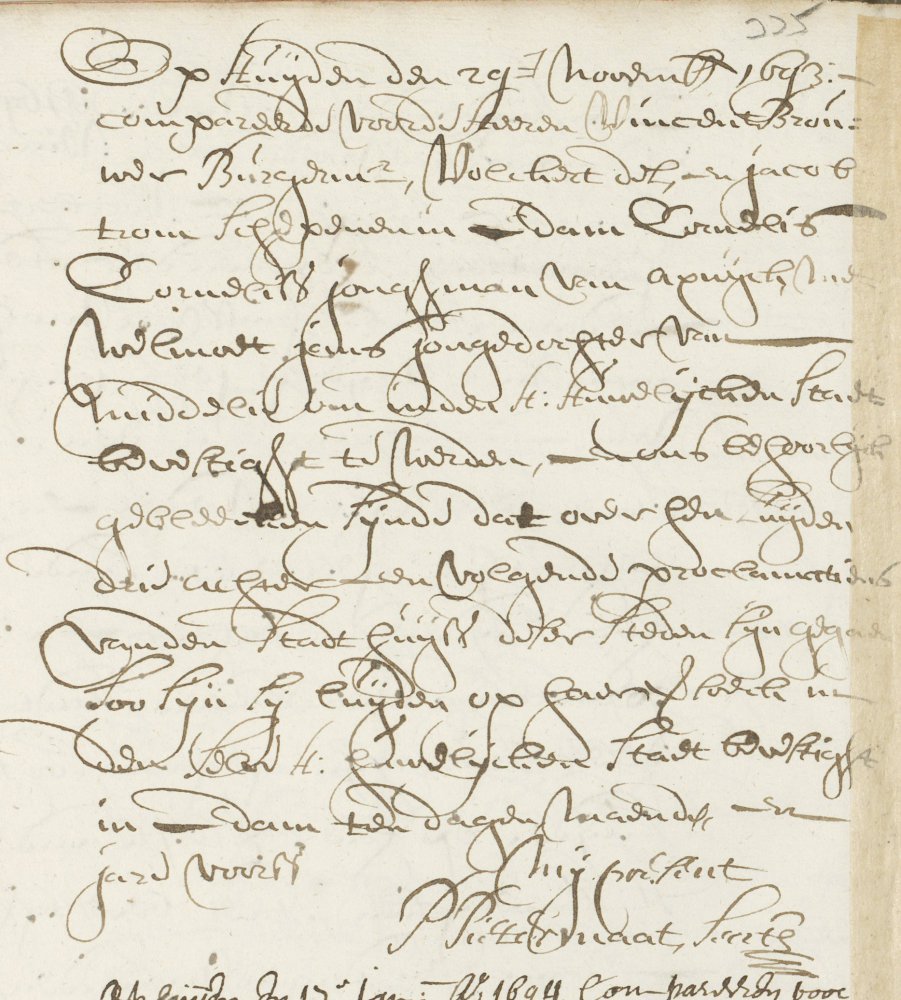 335
Op huijden den 29e Novemb 1693:
compareerde voor de heeren Vincent Brou=
wer Burgermr, Volckert del, en jacob
trom schepenen in Edam Cornelis
Cornelisz jonghman van apwijck, met
welmoet jans jongedochter van
middelie om inden H: Huwelijcken staet
bevestight te werden, en ons behoorlijck
gebleecken sijnde dat over hen luijden
drie achter een volgende proclamatiens
vanden stadthuijse deser steden sijn gegaen
soo sijn sij luijden op haer versoeck in
den selve H: huwelijcken staet bevestight
in Edam ten dagen maende en
jare voorsz
Mij present
P Pietermaat, secrets
Op huijden den 17e Jan: Ao 1694 Compareerden voor